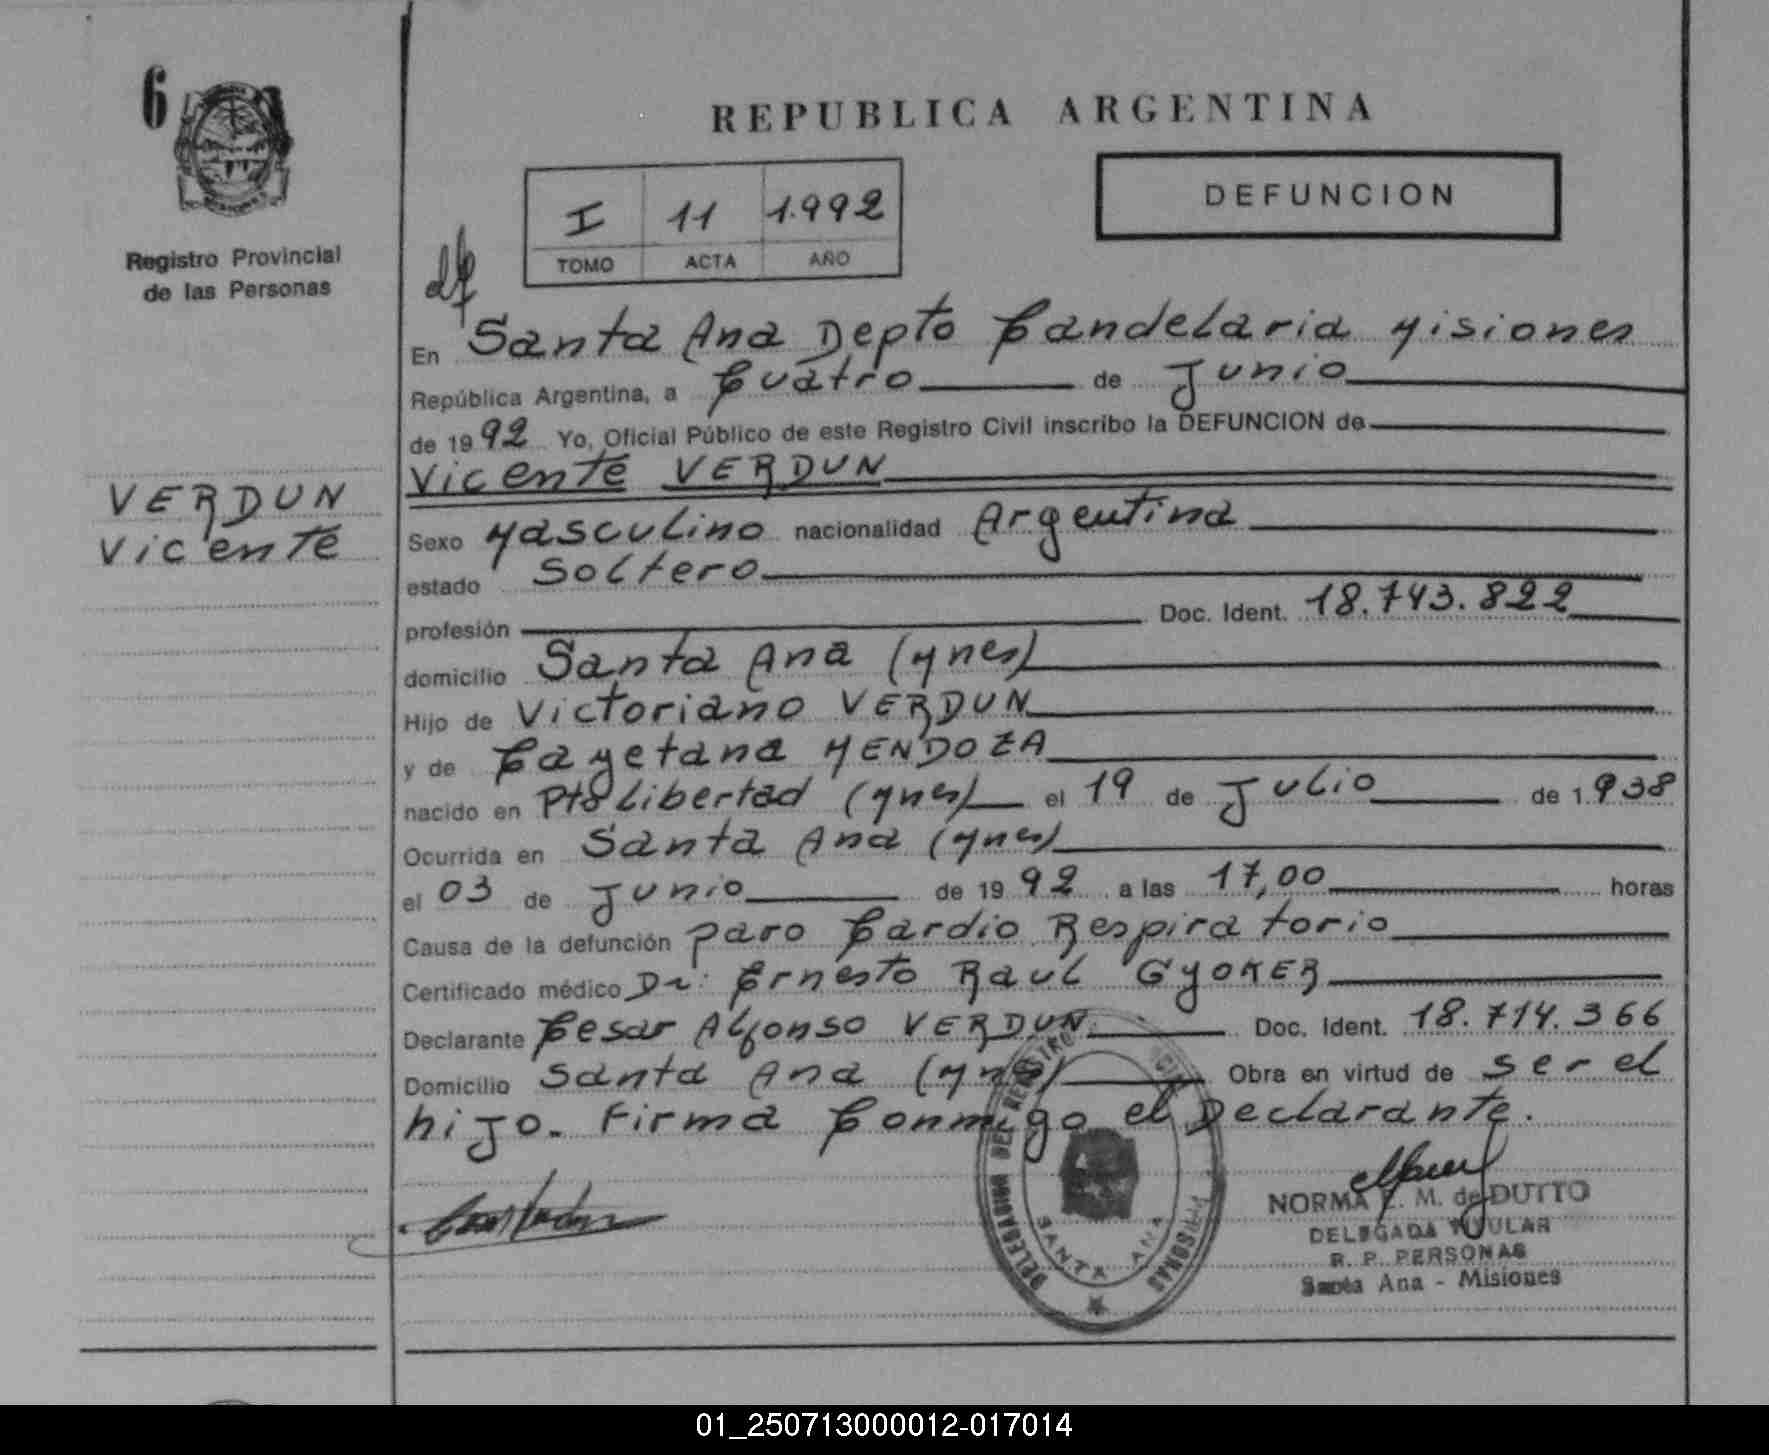 6
REPUBLICA ARGENTINA
DEFUNCION
I 11 1.992
TOMO ACTA AÑO
Registro Provincial
de las Personas
VERDUN
Vicente
En Santa Ana Depto Candelaria Misiones
República Argentina, a Cuatro de Junio
de 1992 Yo, Oficial Público de este Registro Civil inscribo la DEFUNCION de
Vicente VERDUN
Sexo Masculino nacionalidad Argentina
estado Soltero
profesión Doc. Ident. 18.743.822
domicilio Santa Ana (Mnes)
Hijo de Victoriano VERDUN
y de Cayetana MENDOZA
nacido en Pto Libertad (Mnes) el 19 de Julio de 1.938
Ocurrida en Santa Ana (Mnes)
el 03 de Junio de 1992 a las 17,00 horas
Causa de la defunción paro Cardio Respiratorio
Certificado médico Dr: Ernesto Raul GYOKER
Declarante Cesar Alfonso VERDUN Doc. Ident. 18.714.366
Domicilio Santa Ana (Mnes) Obra en virtud de ser el
hijo. Firma Conmigo el Declarante.
DELEGACION DEL REGISTRO PERSONAS
SANTA ANA
NORMA M. de DUTTO
DELEGADA TITULAR
R. P. PERSONAS
Santa Ana - Misiones
01_250713000012-017014